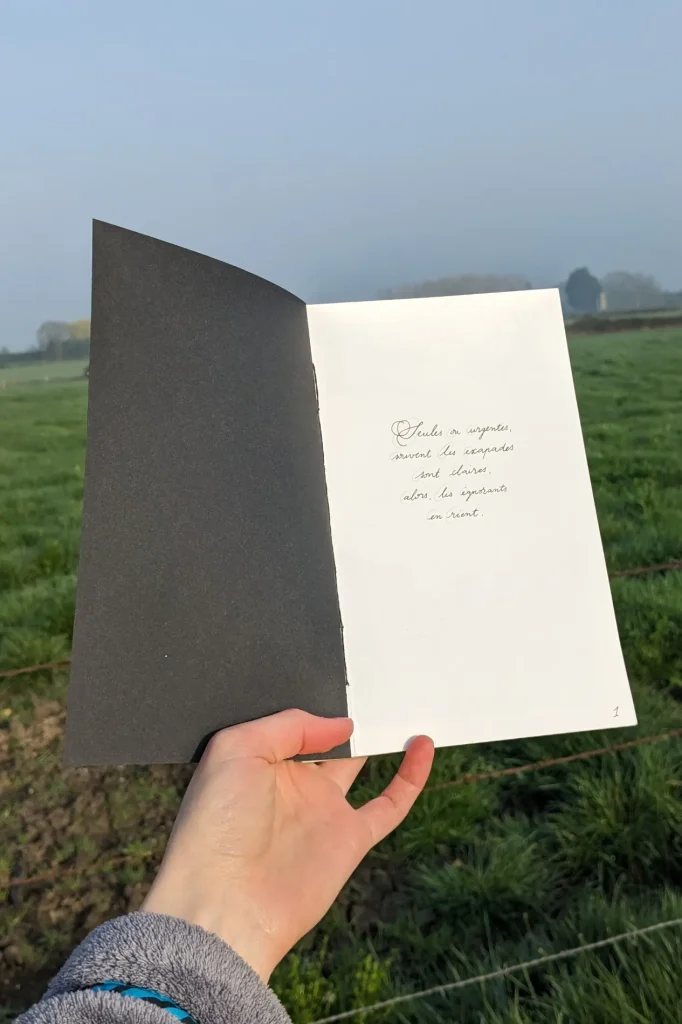 Seules ou urgentes,
suivent les escapades
sont claires,
alors, les ignorants
en rient.
1